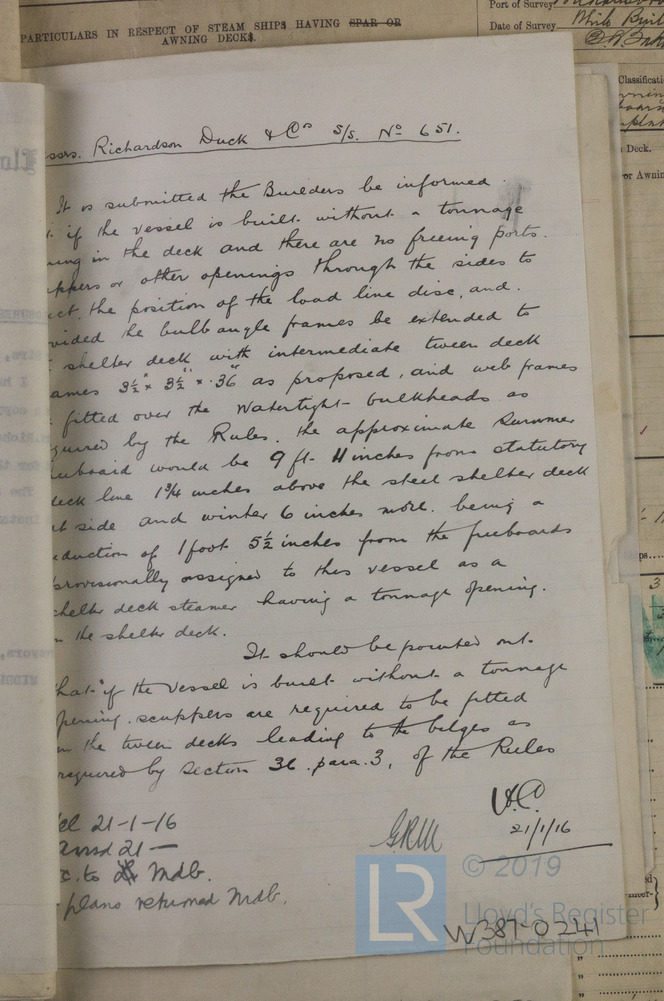 PARTICULARS IN RESPECT OF STEAM SHIPS HAVING SPAR OR
AWNING DECKS.
Port of Survey
Date of Survey
ssrs. Richardson Duck & Cos S/S. No 651.
It is submitted the Builders be informed
if the vessel is built without a tonnage
ning in the deck and there are no freeing ports.
ppers or other openings through the sides to
ect the position of the load line disc, and.
vided the bulb angle frames be extended to
shelter deck with intermediate tween deck
ames 3½" x 3½" x .36" as proposed, and web frames
fitted over the watertight bulkheads as
quired by the Rules. the approximate Summer
eeboard would be 9 ft - 11 inches from statutory
deck line 1¾ inches above the steel shelter deck
at side and winter 6 inches more. being a
eduction of 1 foot 5½ inches from the freeboards
provisionally assigned to this vessel as a
shelter deck steamer having a tonnage opening.
n the shelter deck.
It should be pointed out.
that if the vessel is built without a tonnage
opening. scuppers are required to be fitted
in the tween decks leading to the bilges as
required by Section 36. para. 3, of the Rules
21-1-16
21/1/16
21 —
to Mdb.
plans returned Mdb.
© 2019
Lloyd's Register
Foundation
W387-0241
Classificati
Deck.
or Awnin